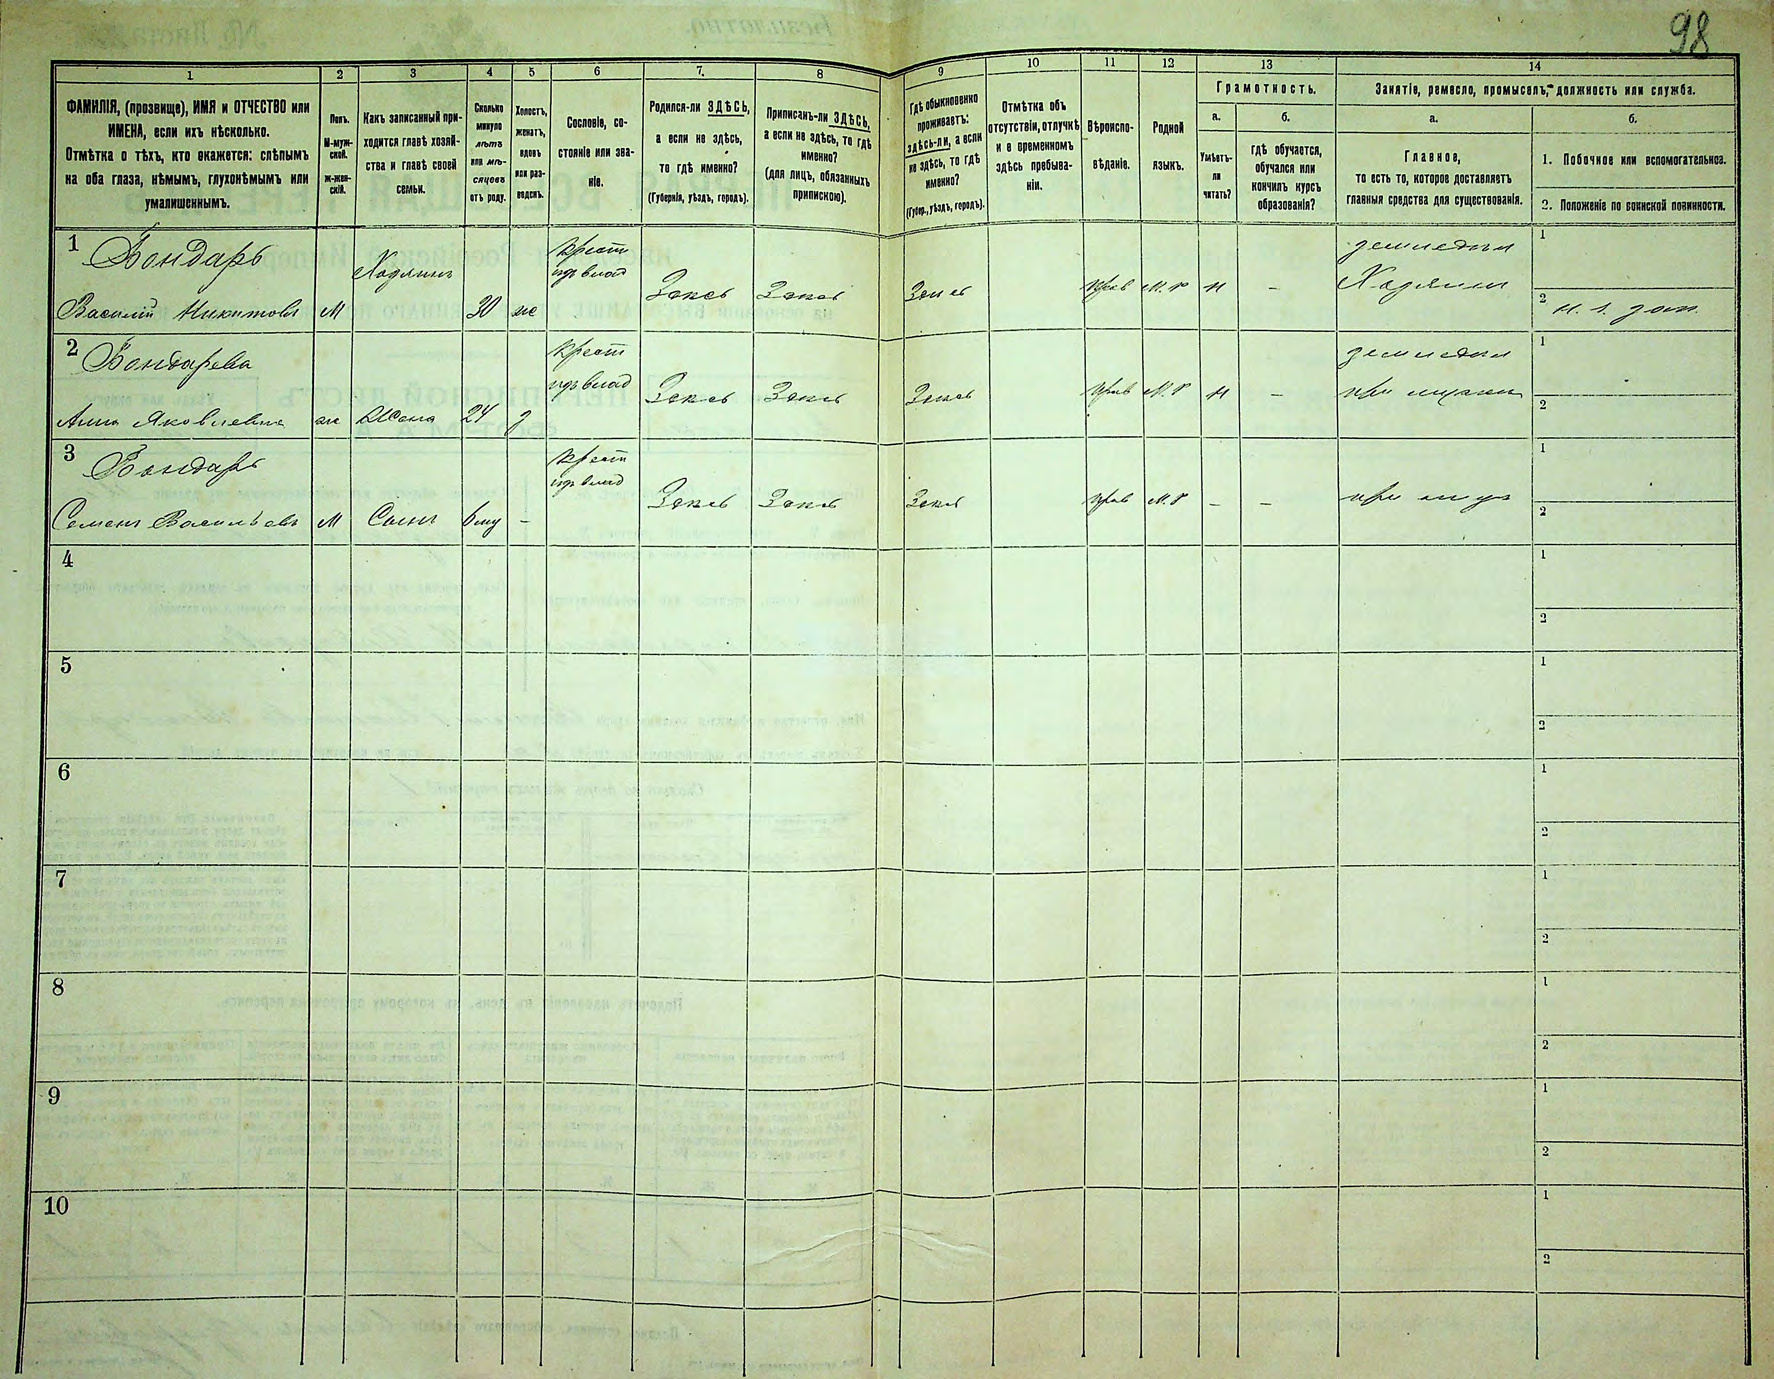 98
1
2
3
4
5
6
7.
8
9
10
11
12
13
14
ФАМИЛІЯ, (прозвище), ИМЯ и ОТЧЕСТВО или
ИМЕНА, если ихъ нѣсколько.
Отмѣтка о тѣхъ, кто окажется: слѣпымъ
на оба глаза, нѣмымъ, глухонѣмымъ или
умалишеннымъ.
Полъ.
М-муж-
ской.
ж-жен-
скій.
Какъ записанный при-
ходится главѣ хозяй-
ства и главѣ своей
семьи.
Сколько
минуло
лѣтъ
или мѣ-
сяцевъ
отъ роду.
Холостъ,
женатъ,
вдовъ
или раз-
веденъ.
Сословіе, со-
стояніе или зва-
ніе.
Родился-ли ЗДѢСЬ,
а если не здѣсь,
то гдѣ именно?
(Губернія, уѣздъ, городъ).
Приписанъ-ли ЗДѢСЬ,
а если не здѣсь, то гдѣ
именно?
(для лицъ, обязанныхъ
припискою).
Гдѣ обыкновенно
проживаетъ:
здѣсь-ли, а если
не здѣсь, то гдѣ
именно?
(Губер., уѣздъ, городъ).
Отмѣтка объ
отсутствіи, отлучкѣ
и о временномъ
здѣсь пребыва-
ніи.
Вѣроиспо-
вѣданіе.
Родной
языкъ.
Грамотность.
а.
Умѣетъ-
ли
читать?
б.
гдѣ обучается,
обучался или
кончилъ курсъ
образованія?
Занятіе, ремесло, промыселъ, должность или служба.
а.
Главное,
то есть то, которое доставляетъ
главныя средства для существованія.
б.
1. Побочное или вспомогательное.
2. Положеніе по воинской повинности.
1
Бондарь
Василій Никитовъ
М
Хозяинъ
30
ж
крест
изъ влад
Здесь
Здесь
Здесь
прав
М. Р
н
-
земледел
Хозяин
1
2
2
Бондарева
Анна Яковлевна
ж
Жена
24
з
крест
изъ влад
Здесь
Здесь
Здесь
прав
М. Р
н
-
земледел
при мужи
1
2
3
Бондарь
Семенъ Васильевъ
М
Сынъ
-
крест
изъ влад
Здесь
Здесь
Здесь
прав
М. Р
-
-
при отцу
1
2
4
1
2
5
1
2
6
1
2
7
1
2
8
1
2
9
1
2
10
1
2